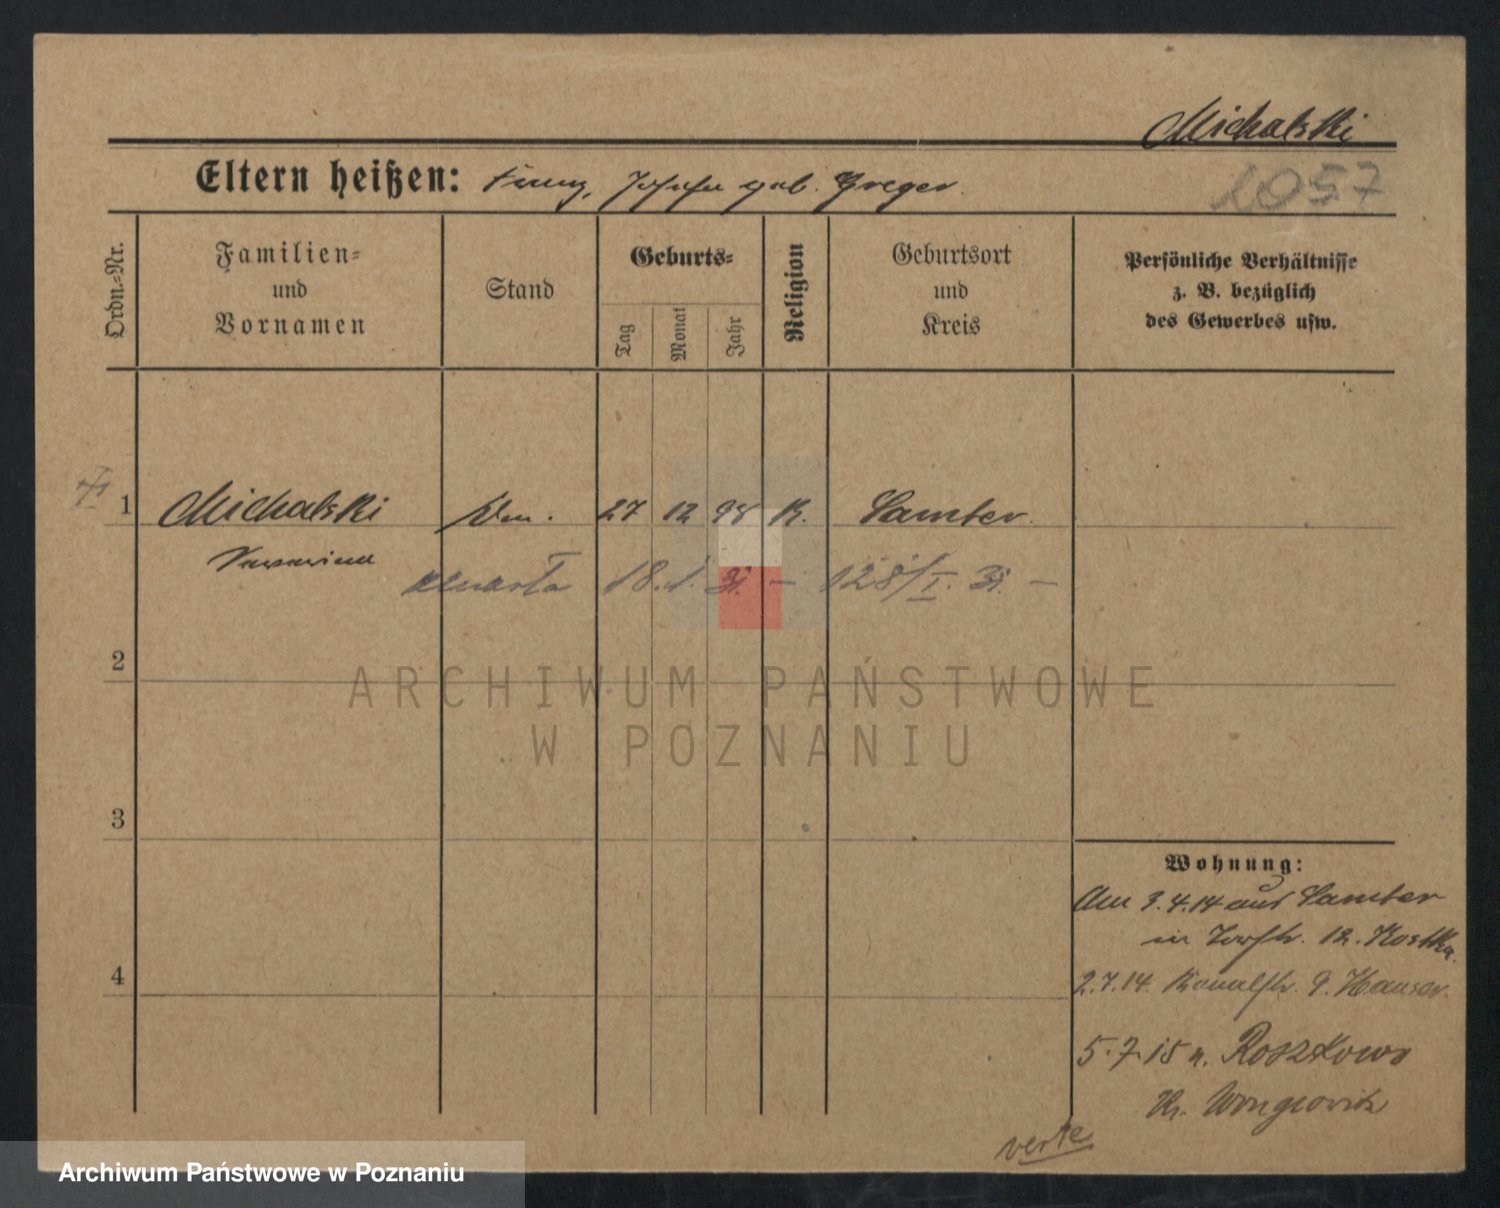 Michalski
Eltern heißen: Franz, Josefa geb. Greger.
1057
Ordn.-Nr.
Familien-
und
Vornamen
Stand
Geburts-
Tag
Monat
Jahr
Religion
Geburtsort
und
Kreis
Persönliche Verhältnisse
z. B. bezüglich
des Gewerbes usw.
1 Michalski 27 12 98 K. Samter
zmarła 18. 1. 31. – 128/I. 31. –
2
ARCHIWUM PAŃSTWOWE
W POZNANIU
3
Wohnung:
Am 3.4.14 aus Samter
in 12. Kostka.
4
2.7.14. Kanalstr. 9. Hauser.
5.7.15 n. Roszkowo
Kr. Wongrowitz
verte
Archiwum Państwowe w Poznaniu